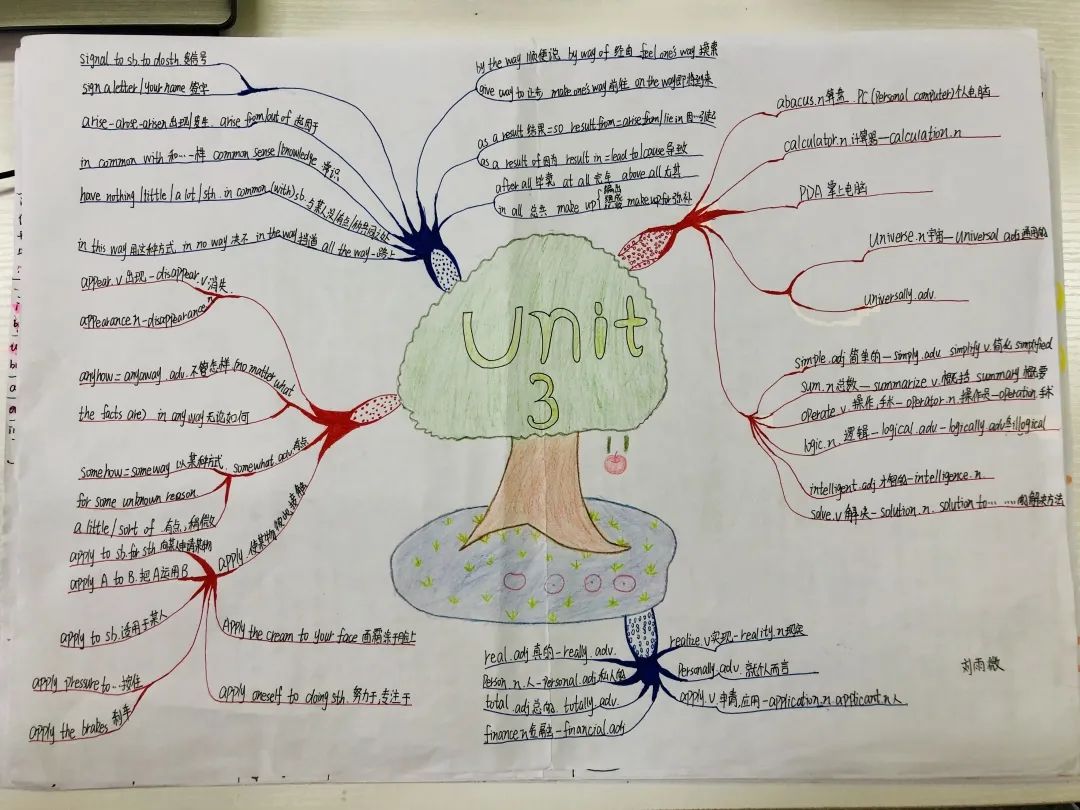 signal to sb. to do sth 发信号
sign a letter/your name 签字
arise-arose-arisen 出现/发生. arise from/out of 起因于
in common with 和…一样 common sense/knowledge 常识
have nothing/little/a lot/sth. in common (with) sb.
in this way 用这种方式. in no way 决不 in the way 挡道 all the way-路上
by the way 顺便说 by way of 经由 feel one's way 摸索
give way to 让步 make one's way 前往 on the way 即将到来
as a result 结果=so result from=arise from/lie in 因…引起
as a result of 因为 result in=lead to/cause 导致
after all 毕竟 at all 完全 above all 尤其
in all 总共 make up make up for 弥补
abacus.n 算盘. PC(personal computer)个人电脑
calculator.n 计算器—calculation.n
PDA 掌上电脑
Universe.n 宇宙—Universal adj 通用的
Universally.adv.
simple.adj 简单的—simply.adv. simplify v.简化 simplified
sum.n 总数—summarize v.概括 summary 概要
operate v.操作,手术—operator.n.操作员—operation 手术
logic.n.逻辑—logical.adv—logically.adv illogical
intelligent.adj 才智的—intelligence.n
solve.v 解决—solution.n. solution to……的解决方法
Unit
3
appear.v 出现-disappear.v 消失
appearance n-disappearance n
anyhow=anyway.adv.不管怎样(no matter what
the facts are) in any way 无论如何
somehow=some way 以某种方式. somewhat adv.有点
for some unknown reason
a little/sort of 有点,稍微
apply.使某物彼此接触
apply to sb. for sth 向某人申请某物
apply A to B.把A运用B
apply to sb.适用于某人
apply pressure to…按住
apply the brakes 刹车
Apply the cream to your face 面霜涂于脸上
apply oneself to doing sth.努力于,专注于
real.adj 真的-really.adv.
Person n.人-Personal.adj 私人的
total.adj 总的.totally.adv.
finance n 金融-financial.adj
realize.v 实现-reality.n 现实
Personally.adv.就个人而言
apply.v 申请,应用-application.n applicant.n 人
刘雨薇